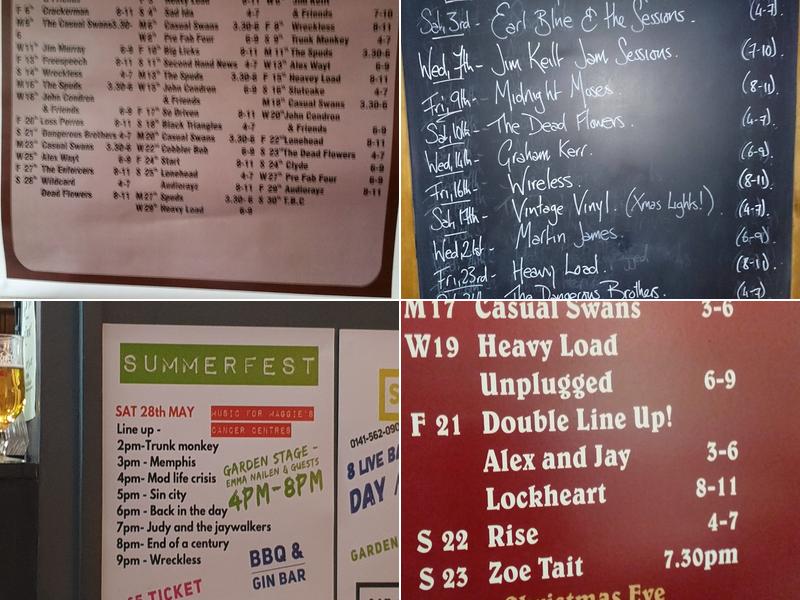 F 6th Crackerman 8-11
M 9th The Casual Swans3.30-
6
W11th Jim Murray 6-9
F 13th Freespeech 8-11
S 14th Wreckless 4-7
M16th The Spuds 3.30-6
W18th John Condron
& Friends 6-9
F 20th Loss Perros 8-11
S 21st Dangerous Brothers 4-7
M23rd Casual Swans 3.30-6
W25th Alex Wayt 6-9
F 27th The Enforcers 8-11
S 28th Wildcard 4-7
Dead Flowers 8-11
Heavy Load 8-11
S 4th Sad Ida 4-7
M 6th Casual Swans 3.30-6
W 8th Pre Fab Four 6-9
F 10th Big Licks 8-11
S 11th Second Hand News 4-7
M 13th The Spuds 3.30-6
W15th John Condron
& Friends 6-9
F 17th So Driven 8-11
S 18th Black Triangles 4-7
M20th Casual Swans 3.30-6
W 22nd Cobbler Bob 6-9
F 24th Start 8-11
S 25th Lonehead 4-7
Audiorayz 8-11
M27th Spuds 3.30-6
W29th Heavy Load 6-9
& Friends 7-10
F 8th Wreckless 8-11
S 9th Trunk Monkey 4-7
M 11th The Spuds 3.30-6
W13th Alex Wayt 6-9
F 15th Heavey Load 8-11
S 16th Slutcake 4-7
M 18th Casual Swans 3.30-6
W 20th John Condron
& Friends 6-9
F 22nd Lonehead 8-11
S 23rd The Dead Flowers 4-7
S 24th Clyde 6-9
W 27th Pre Fab Four 6-9
F 29th Audiorayz 8-11
S 30th T.B.C
Sat, 3rd - Earl Blue & the Sessions. (4-7)
Wed, 7th - Jim Keilt Jam Sessions. (7-10)
Fri, 9th - Midnight Moses. (8-11)
Sat, 10th - The Dead Flowers. (4-7).
Wed, 14th - Graham Kerr. (6-9).
Fri, 16th - Wireless. (8-11)
Sat, 17th - Vintage Vinyl. (Xmas Lights!) (4-7).
Wed, 21st - Martin James. (6-9)
Fri, 23rd - Heavy Load. (8-11).
The Dangerous Brothers. (4-7)
SUMMERFEST
SAT 28th MAY
MUSIC FOR MAGGIE'S
CANCER CENTRES
Line up -
2pm-Trunk monkey
3pm - Memphis
4pm- Mod life crisis
5pm - Sin city
6pm - Back in the day
7pm- Judy and the jaywalkers
8pm- End of a century
9pm - Wreckless
GARDEN STAGE -
EMMA NAILEN & GUESTS
4PM-8PM
BBQ &
GIN BAR
TICKET
S
0141-562-090
8 LIVE BA
DAY /
GARDEN
M 17 Casual Swans 3-6
W19 Heavy Load
Unplugged 6-9
F 21 Double Line Up!
Alex and Jay 3-6
Lockheart 8-11
S 22 Rise 4-7
S 23 Zoe Tait 7.30pm
Christmas Eve